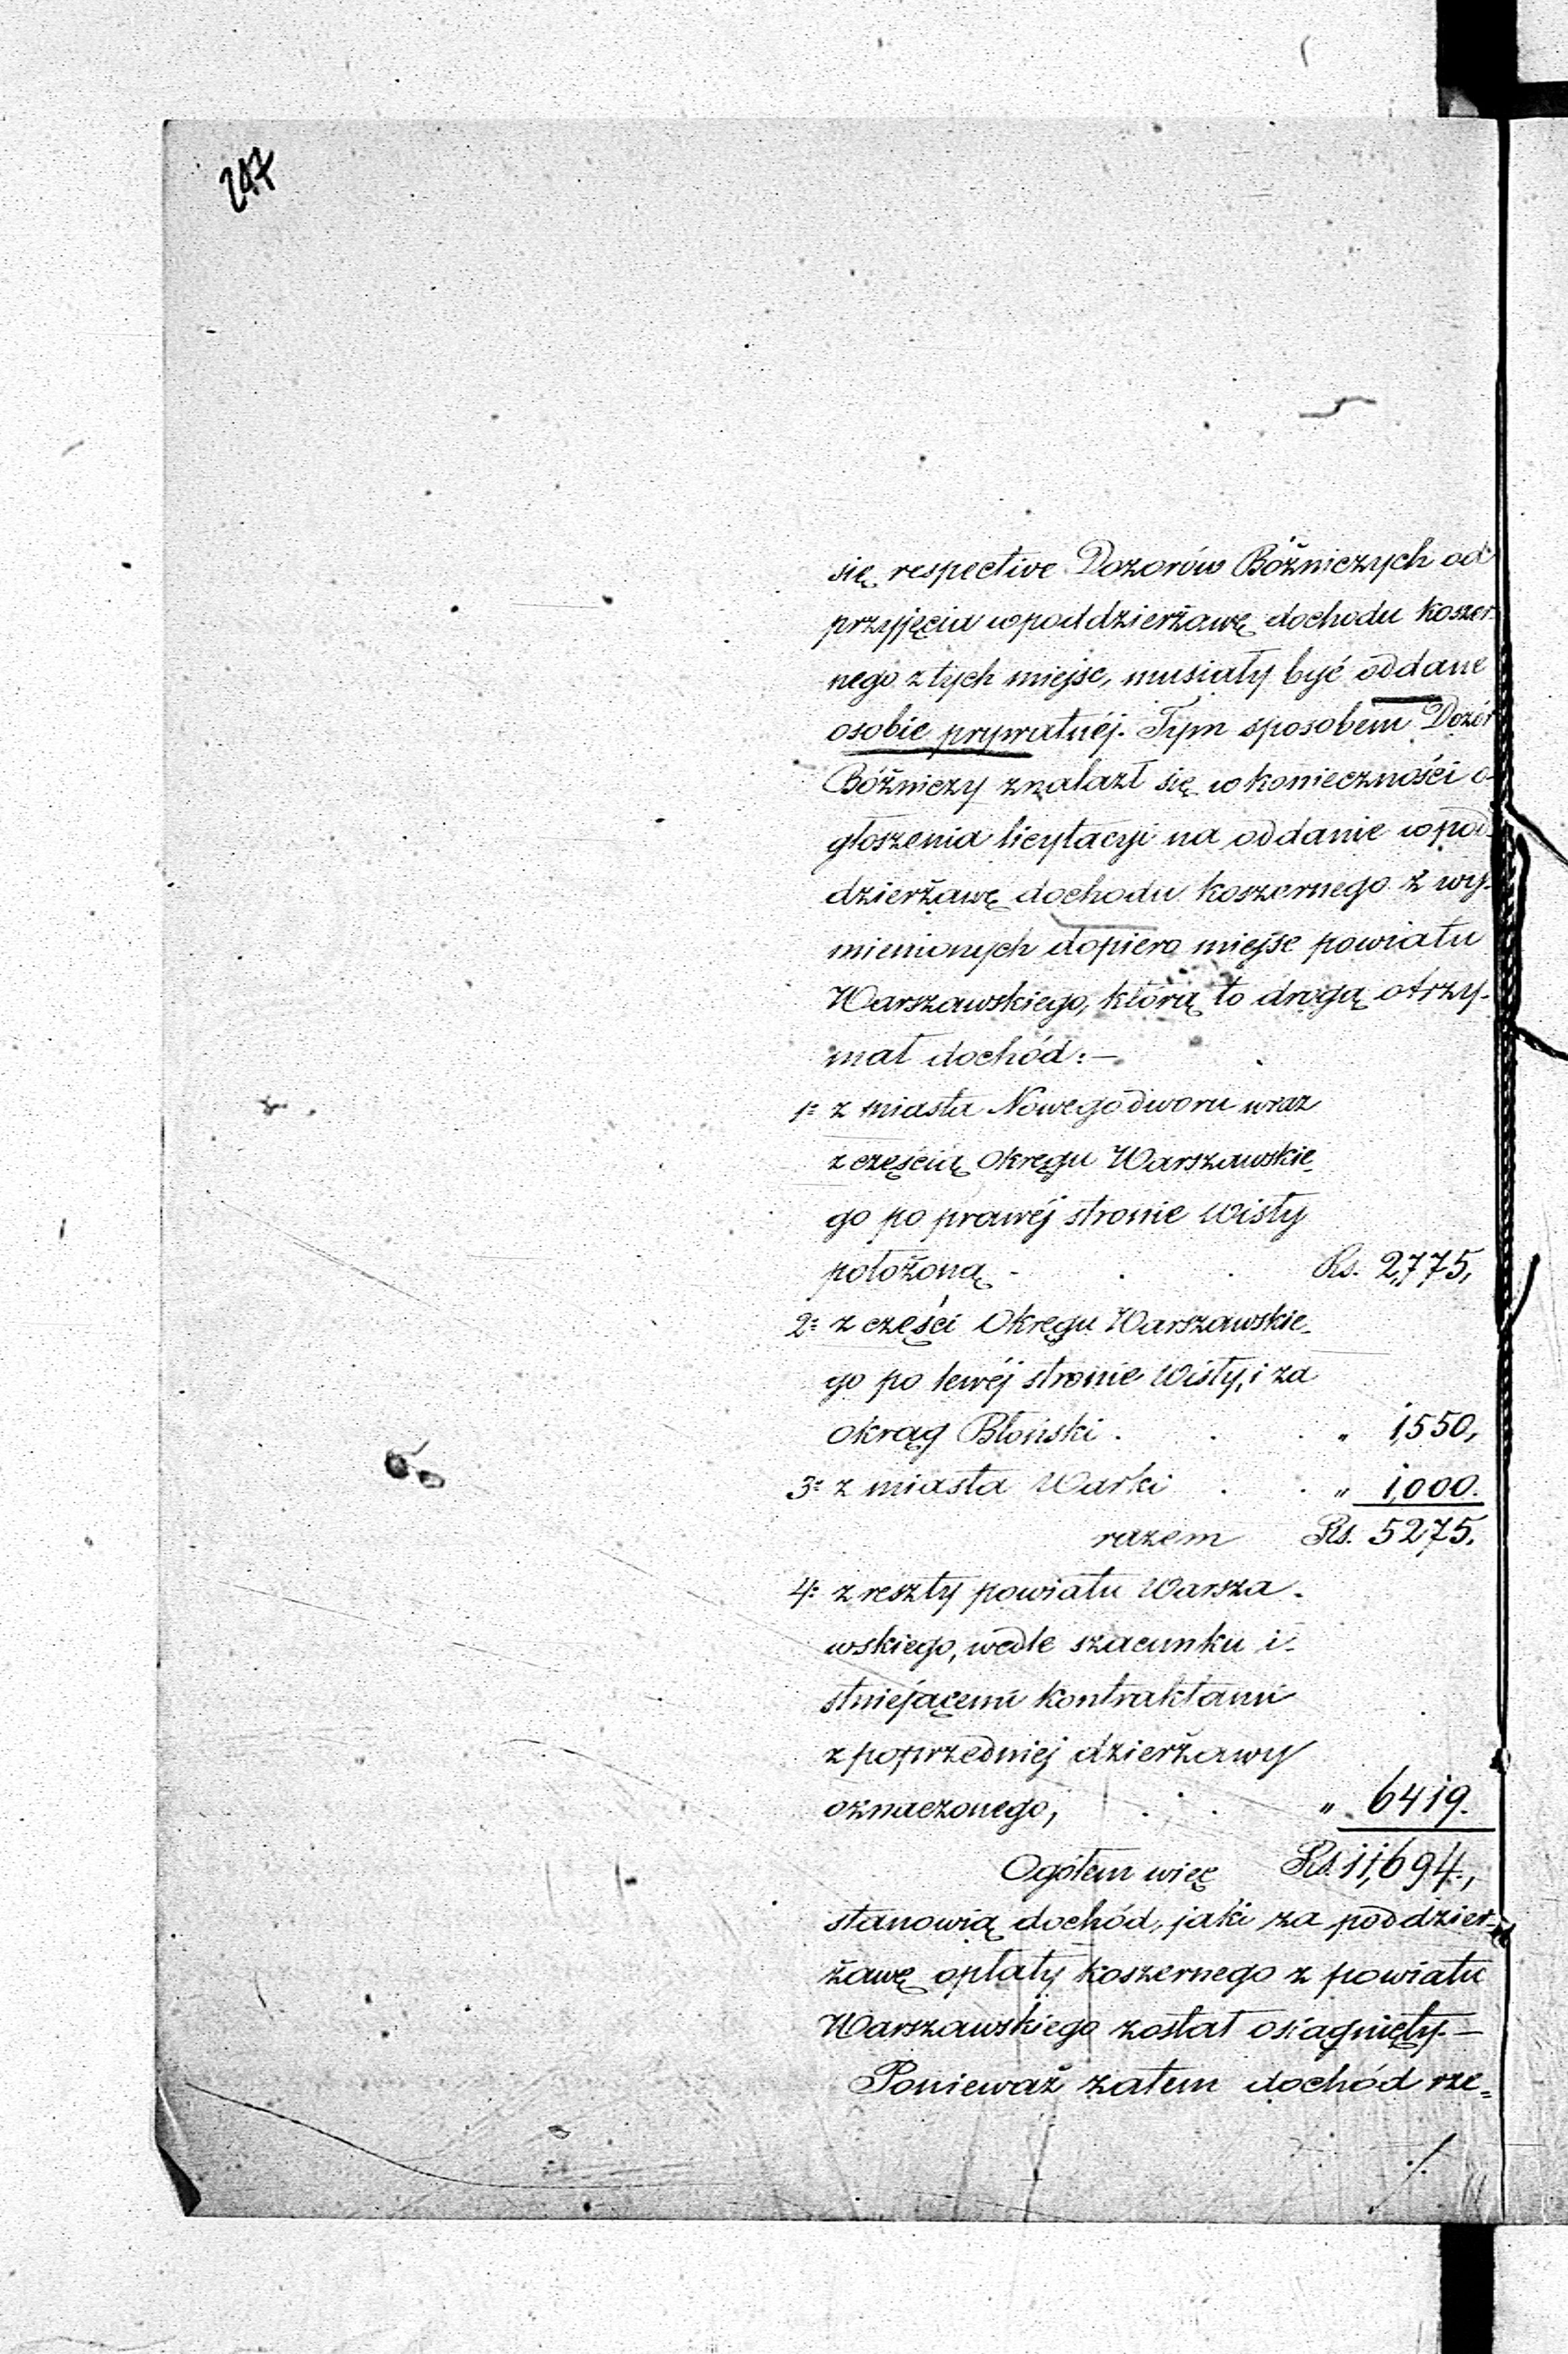 247
się respective Dozorów Bóżniczych od
przyjęcia w poddzierżawę dochodu koszer-
nego z tych miejsc, musiały być oddane
osobie prywatnéj. Tym sposobem Dozór
Bóżniczy znalazł się w konieczności o-
głoszenia licytacyi na oddanie w pod
dzierżawę dochodu koszernego z wy-
mienionych dopiero miejsc powiatu
Warszawskiego, którą to drogą otrzy-
mał dochód:—
1: z miasta Nowegodworu wraz
z częścią Okręgu Warszawskie-
go po prawéj stronie Wisły
położoną - . . Rs. 2,775,
2: z części Okręgu Warszawskie-
go po lewéj stronie Wisły, i za
okrąg Błoński . . . " 1,550,
3: z miasta Warki . . " 1,000.
razem Rs. 5275.
4: z reszty powiatu Warsza-
wskiego, wedle szacunku i-
stniejącemi kontraktami
z poprzedniej dzierżawy
oznaczonego, . . . " 6419.
Ogółem więc Rs. 11,694.,
stanowią dochód, jaki za poddzier-
żawę opłaty koszernego z powiatu
Warszawskiego został osiągnięty.—
Ponieważ zatem dochód rze=